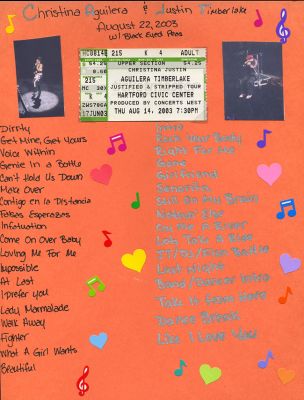 Christina Aguilera & Justin Timberlake
August 22, 2003
w/ Black Eyed Peas
215 K 4 ADULT
UPPER SECTION
CHRISTINA JUSTIN
AGUILERA TIMBERLAKE
JUSTIFIED & STRIPPED TOUR
HARTFORD CIVIC CENTER
PRODUCED BY CONCERTS WEST
THU AUG 14, 2003 7:30PM
Dirrty
Get Mine, Get Yours
Voice Within
Genie In a Bottle
Can't Hold Us Down
Make Over
Contigo en la Distancia
Falsas Esperanzas
Infatuation
Come On Over Baby
Loving Me For Me
Impossible
At Last
I prefer You
Lady Marmalade
Walk Away
Fighter
What A Girl Wants
Beautiful
Intro
Rock Your Body
Right For Me
Gone
Girlfriend
Senorita
Still On My Brain
Nothin' Else
Cry Me A River
Let's Take A Ride
Last Night
Band/Dancer Intro
Take It From Here
Dance Break
Like I Love You